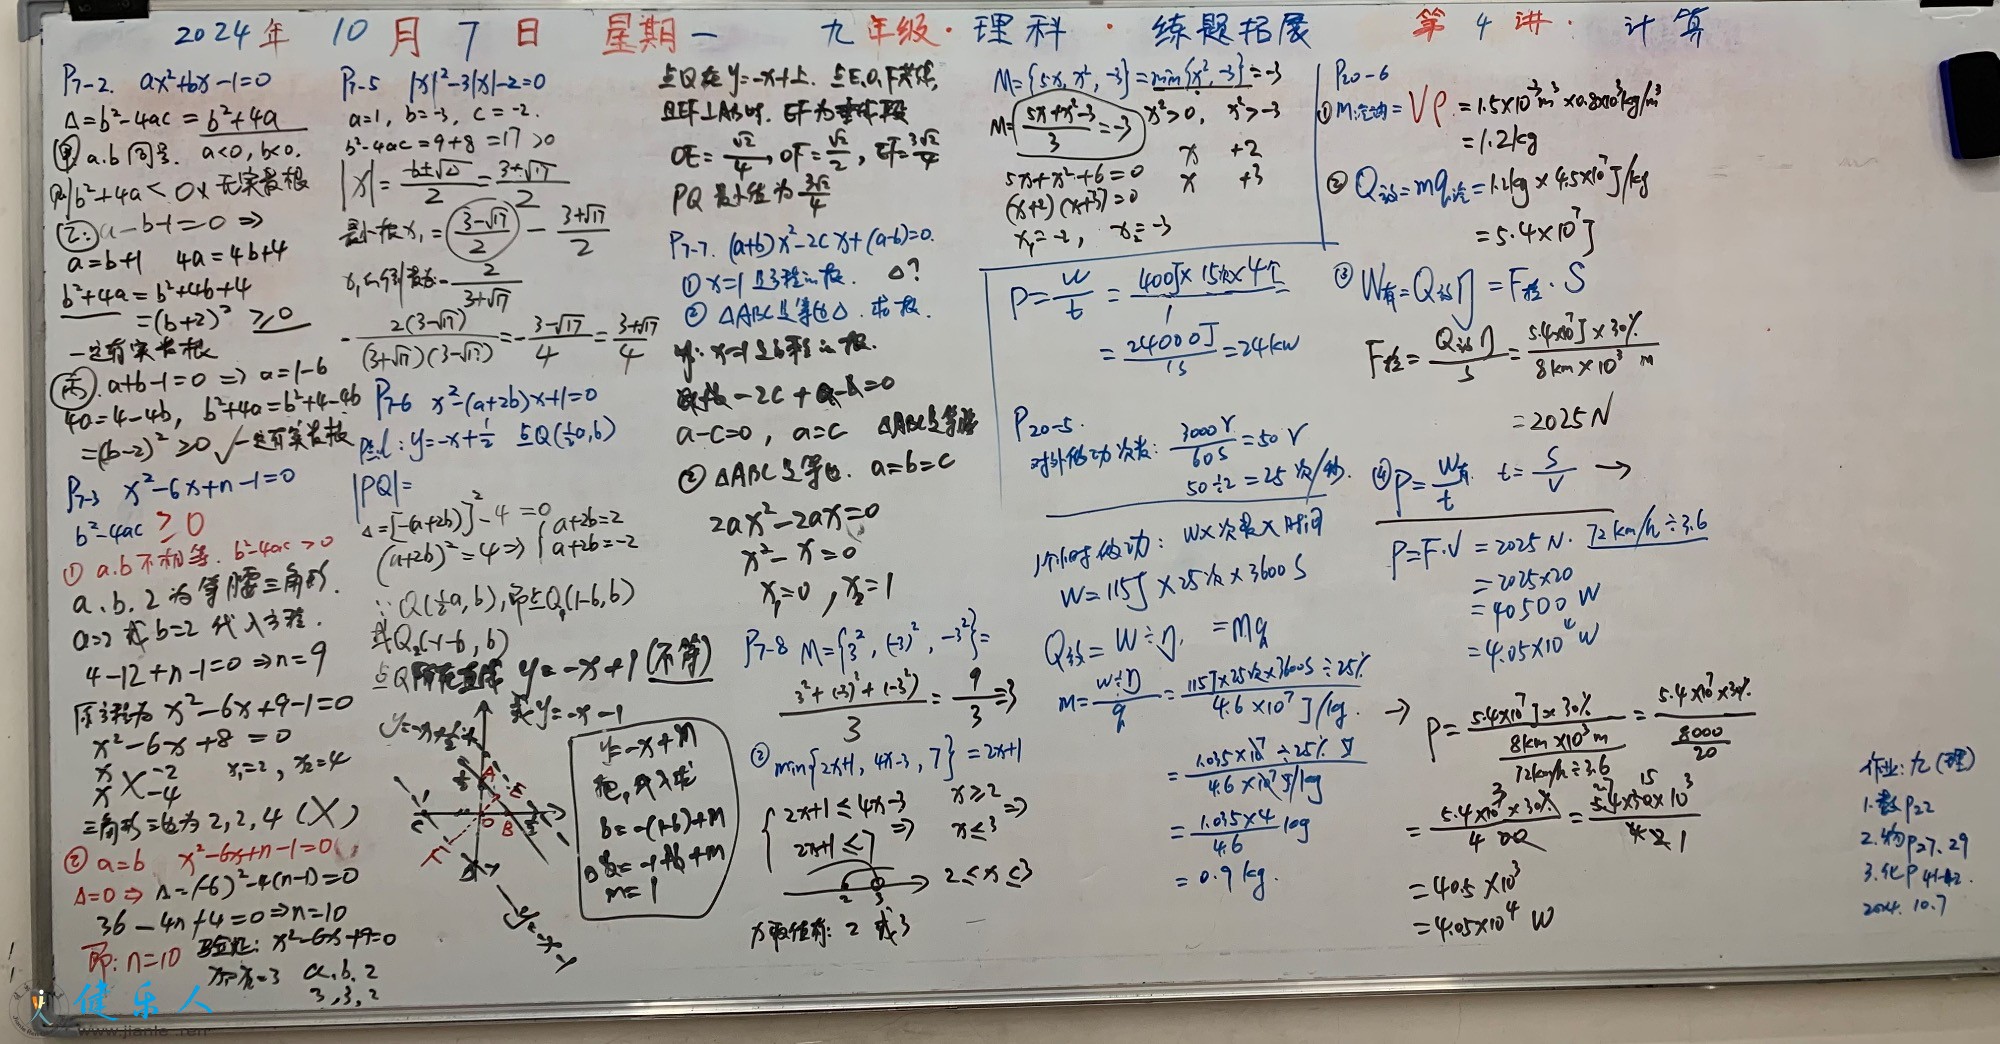 2024年 10月 7日 星期一 九年级·理科·练题拓展 第4讲·计算
P7-2. ax²+bx-1=0
Δ=b²-4ac=b²+4a
甲 a.b同号. a<0, b<0.
b²+4a<0× 无实数根
乙: a-b-1=0 ⇒
a=b+1 4a=4b+4
b²+4a=b²+4b+4
=(b+2)² ≥0
一定有实数根
丙. a+b-1=0 ⇒ a=1-b
4a=4-4b, b²+4a=b²+4-4b
=(b-2)² ≥0 √一定有实数根
P7-3 x²-6x+n-1=0
b²-4ac ≥0
① a.b不相等. b²-4ac>0
a、b、2为等腰三角形.
a=2或b=2代入方程.
4-12+n-1=0⇒n=9
原方程为 x²-6x+9-1=0
x²-6x+8=0
x -2
x -4
x₁=2, x₂=4
三角形三边为2,2,4(X)
② a=b x²-6x+n-1=0
Δ=0⇒Δ=(-6)²-4(n-1)=0
36-4n+4=0⇒n=10
即: n=10 验证: x²-6x+9=0
a.b.2
3,3,2
P7-5 |x|²-3|x|-2=0
a=1, b=-3, c=-2.
b²-4ac=9+8=17>0
|x|=(-b±√Δ)/2=(3±√17)/2
最小根x₁=(3-√17)/2 -(3+√17)/2
x₁的倒数为-2/(3+√17)
-2(3-√17)/((3+√17)(3-√17))=-(3-√17)/4=(3+√17)/4
P7-6 x²-(a+2b)x+1=0
l: y=-x+1/2 点Q(½a,b)
|PQ|=
Δ=[-(a+2b)]²-4=0
(a+2b)²=4⇒{a+2b=2
a+2b=-2
∵Q(½a,b), 即点Q₁(1-b,b)
或Q₂(-1-b,b)
点Q所在直线 y=-x+1(不等)
或y=-x-1
y=-x+½
A
E
C
O
B
F
D
y=-x+m
b=-(1-b)+m
b=-1+b+m
m=1
点Q在y=-x+1上. 点E,O,F共线,
且EF⊥AB时. EF为垂线段
OE=√2/4, OF=√2/2, EF=3√2/4
PQ最小值为3√2/4
P7-7. (a+b)x²-2cx+(a-b)=0.
① x=1是方程的根. Δ?
② △ABC是等边△. 求根.
x=1是方程的根.
-2c+a-b=0
a-c=0, a=c △ABC是等腰
② △ABC是等边. a=b=c
2ax²-2ax=0
x²-x=0
x₁=0, x₂=1
P7-8 M={3², (-3)², -3²}=
(3²+(-3)²+(-3²))/3=9/3=3
② min{2x+1, 4x-3, 7}=2x+1
{2x+1≤4x-3 x≥2
2x+1≤7 ⇒ x≤3 ⇒
2 3 2≤x≤3
x取值为: 2或3
M={5x, x², -3}=min{x², -3}=-3
M=(5x+x²-3)/3=-3 x²>0, x²>-3
5x+x²+6=0
x +2
x +3
(x+2)(x+3)=0
x₁=-2, x₂=-3
P=W/t=400J×15次×4个/1
=24000J/1s=24kw
P20-5.
对外做功次数: 3000r/60s=50r
50÷2=25次/秒.
1个小时做功: W×次数×时间
W=115J×25次×3600s
Q放=W÷η. =mq
m=(W÷η)/q=115J×25次×3600s÷25%/4.6×10⁷J/kg.
=1.035×10⁷÷25%J/4.6×10⁷J/kg
=1.035×4/4.6 kg
=0.9kg.
P20-6
① m汽油=Vρ=1.5×10⁻³m³×0.8×10³kg/m³
=1.2kg
② Q放=mq汽=1.2kg×4.5×10⁷J/kg
=5.4×10⁷J
③ W有=Q放η=F牵·S
F牵=Q放η/S=5.4×10⁷J×30%/8km×10³m
=2025N
④ P=W有/t t=S/V →
P=F·V=2025N·72km/h÷3.6
=2025×20
=40500W
=4.05×10⁴W
→ P=5.4×10⁷J×30%/(8km×10³m/72km/h÷3.6)=5.4×10⁷×30%/(8000/20)
=5.4×10⁷×30%/400=5.4×30×10³/4
=40.5×10³
=4.05×10⁴W
作业:九(理)
1.数P22
2.物P27、29
3.化P41-42.
2024.10.7
健乐人
www.jianle.ren